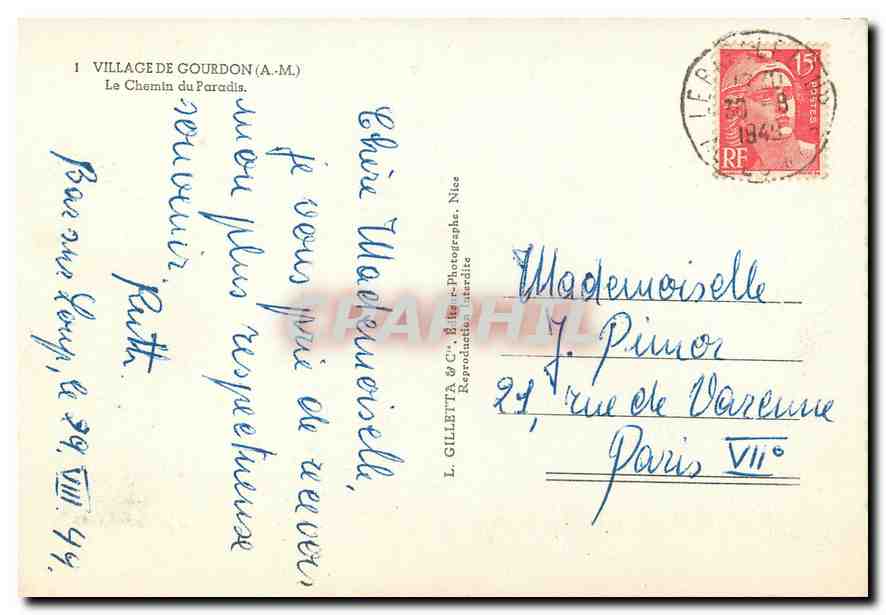 1 VILLAGE DE GOURDON (A.-M.)
Le Chemin du Paradis.
Chère Mademoiselle,
je vous prie de recevoir
mon plus respectueuse
souvenir.
Ruth.
Bar sur Loup, le 29. VIII. 49.
L. GILLETTA & Cie, Éditeur-Photographe, Nice
Reproduction Interdite
15F
POSTES
RF
1949
Mademoiselle
J. Pimor
21, rue de Varenne
Paris VIIº
CPAPHIL